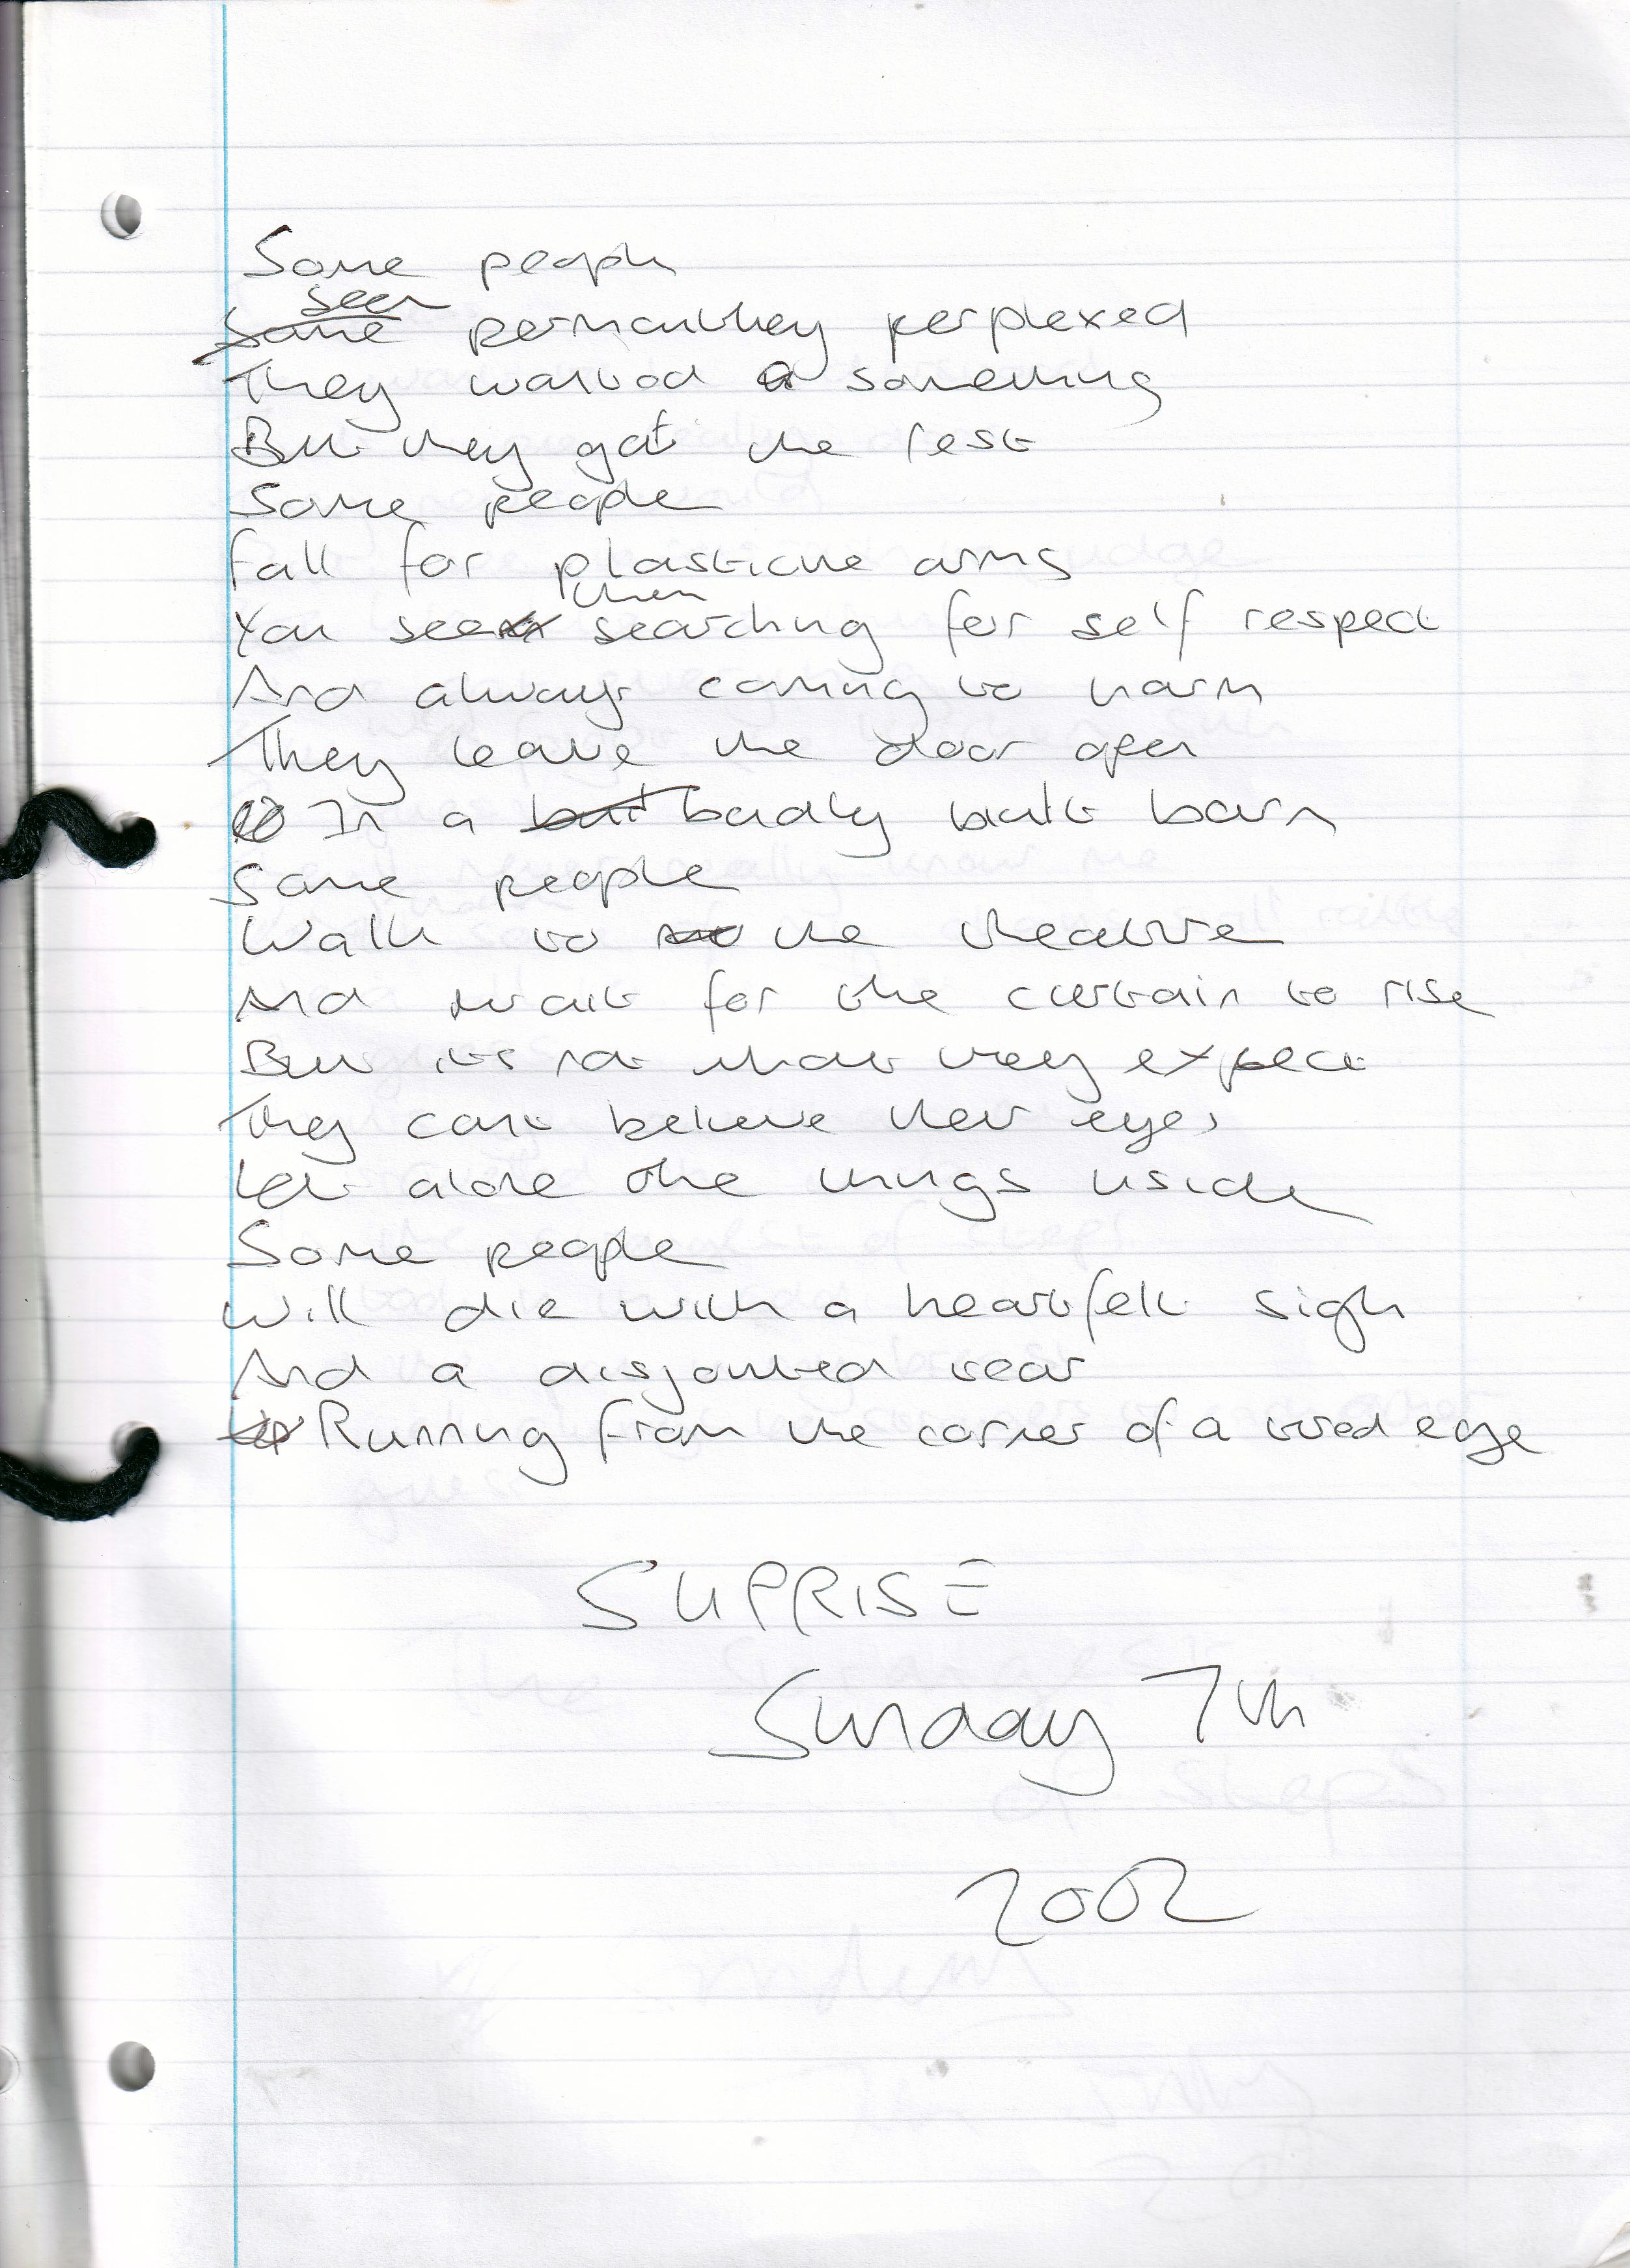 Some people
seem permantley perplexed
They wanted a something
But they got the rest
Some people
Fall for plasticine arms
You see them searching for self respect
And always coming to harm
They leave the door open
In a badly built barn
Some people
Walk to the theatre
And wait for the curtain to rise
But its not what they expect
They cant believe their eyes
Let alone the things inside
Some people
Will die with a heartfelt sigh
And a disjointed tear
Running from the corner of a tired eye
SUPRISE
Sunday 7th
2002